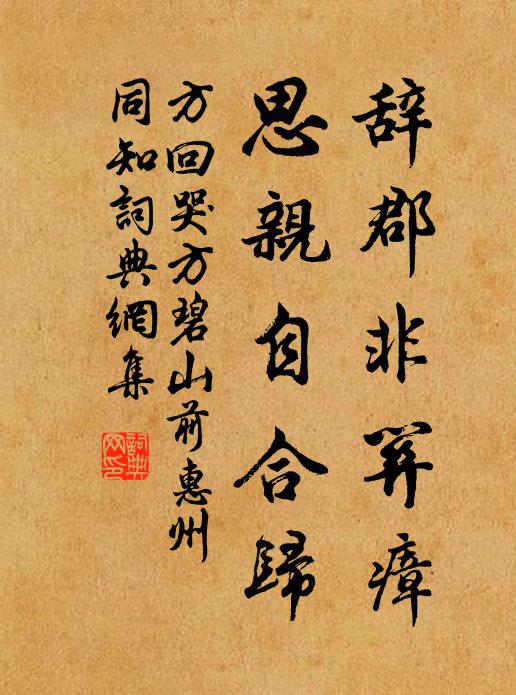 辞郡非筭瘴
思親自合歸
方回哭方碧山前惠州
同知詞典網集
詞典
网印